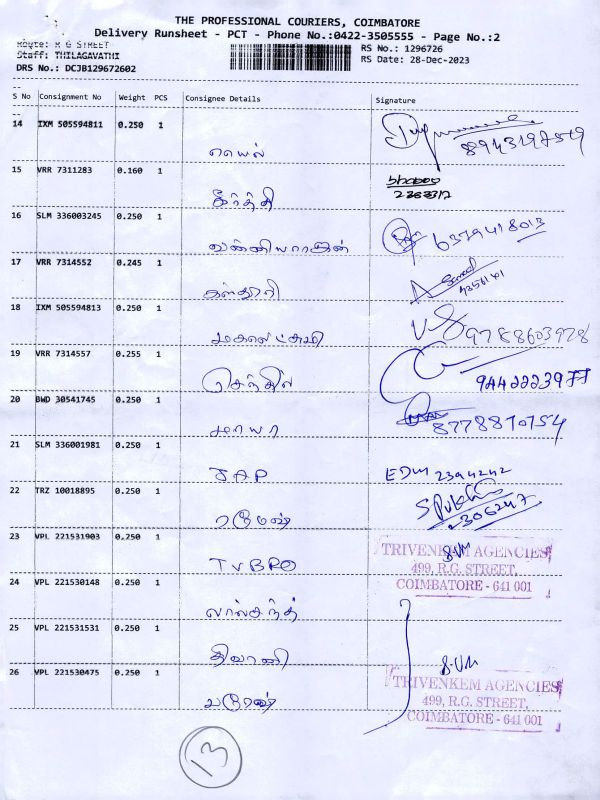 THE PROFESSIONAL COURIERS, COIMBATORE
Delivery Runsheet - PCT - Phone No.:0422-3505555 - Page No.:2
Route: R G STREET
RS No.: 1296726
Staff: THILAGAVATHI
RS Date: 28-Dec-2023
DRS No.: DCJB129672602
S No Consignment No Weight PCS Consignee Details Signature
14 IXM 505594811 0.250 1
8943197519
15 VRR 7311283 0.160 1
கீர்த்தி
16 SLM 336003245 0.250 1 6379418013
வன்னியராஜன்
17 VRR 7314552 0.245 1
கஸ்தூரி
18 IXM 505594813 0.250 1
மகாலட்சுமி 9788603928
19 VRR 7314557 0.255 1
செந்தில் 9442223977
20 BWD 30541745 0.250 1
மாயா 8778870754
21 SLM 336001981 0.250 1
JAP EDM 2394242
22 TRZ 10018895 0.250 1
ரமேஷ் 2306247
23 VPL 221531903 0.250 1
TVBRO
TRIVENKEM AGENCIES
499, R.G. STREET,
COIMBATORE - 641 001
24 VPL 221530148 0.250 1
லால்சந்த்
25 VPL 221531531 0.250 1
சிவானி
26 VPL 221530475 0.250 1
பரேஷ்
TRIVENKEM AGENCIES
499, R.G. STREET,
COIMBATORE - 641 001
13